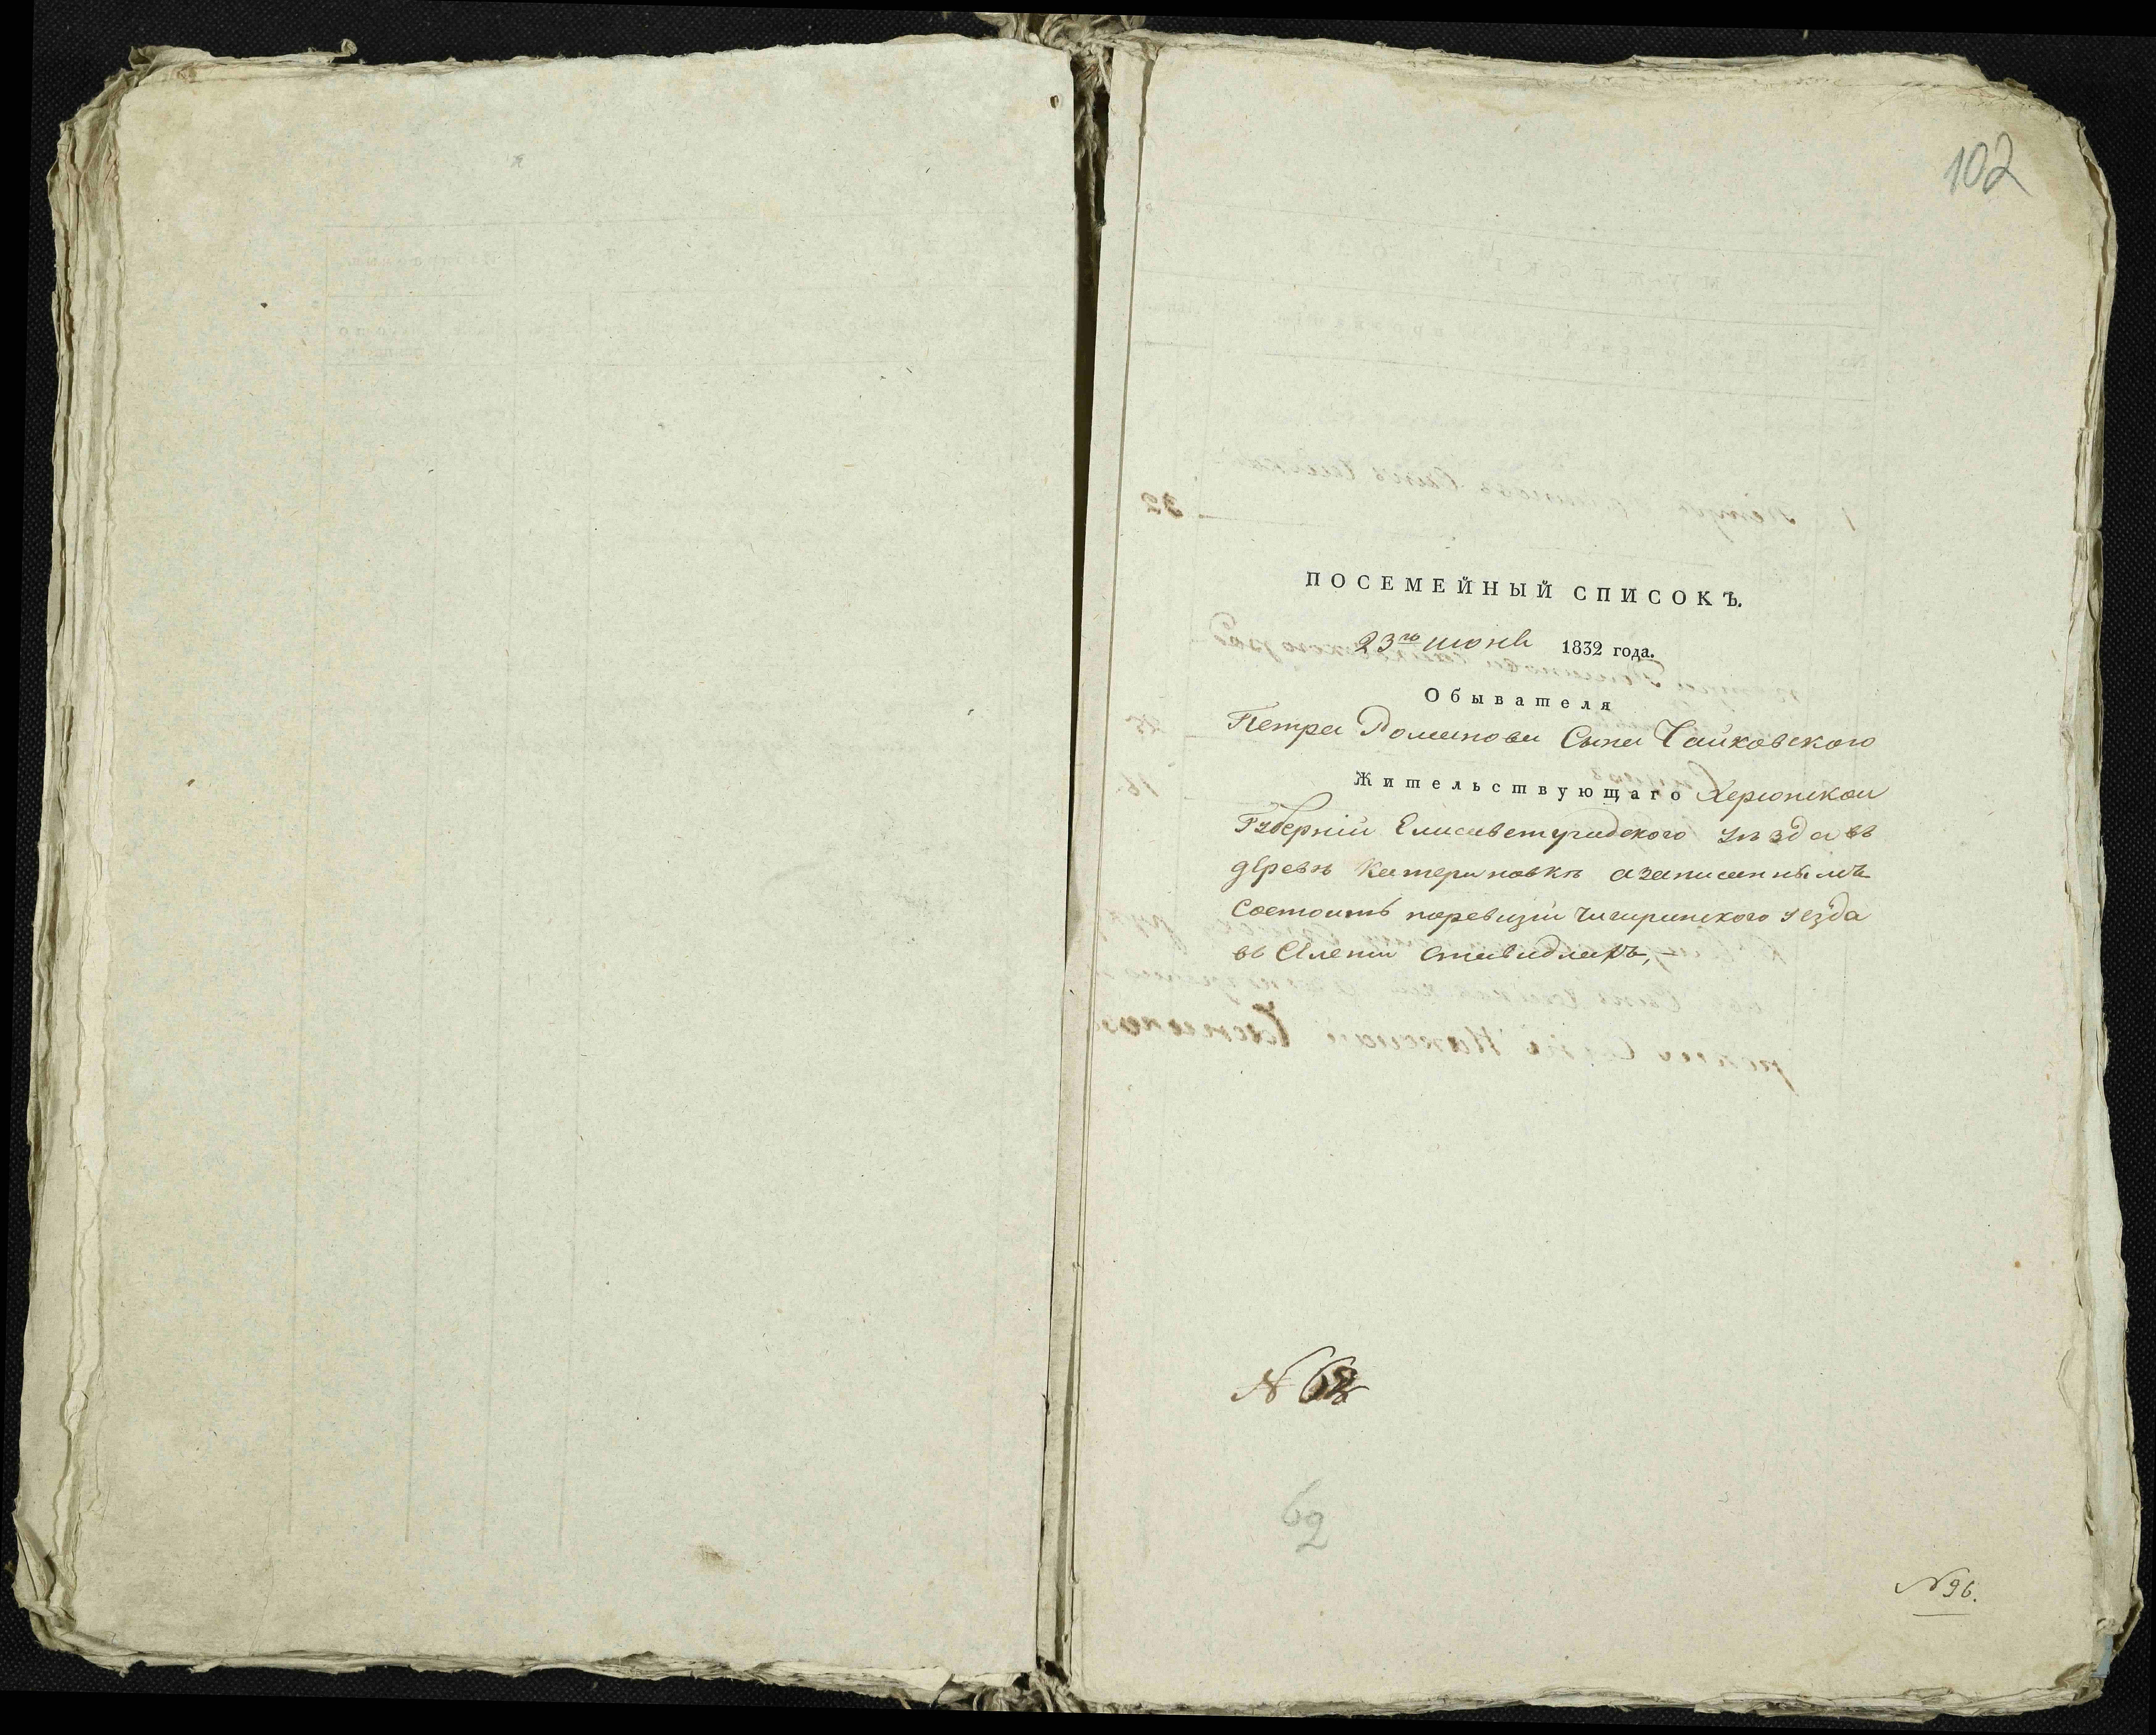 102
ПОСЕМЕЙНЫЙ СПИСОКЪ.
23го июня 1832 года.
Обывателя
Петра Романова Сына Чайковского
Жительствующаго Херсонской
Губерніи Елисаветградского уѣзда въ
деревнѣ Катериновкѣ а записаннымъ
состоитъ поревизіи Чигиринского уезда
въ
N 62
62
N 96.